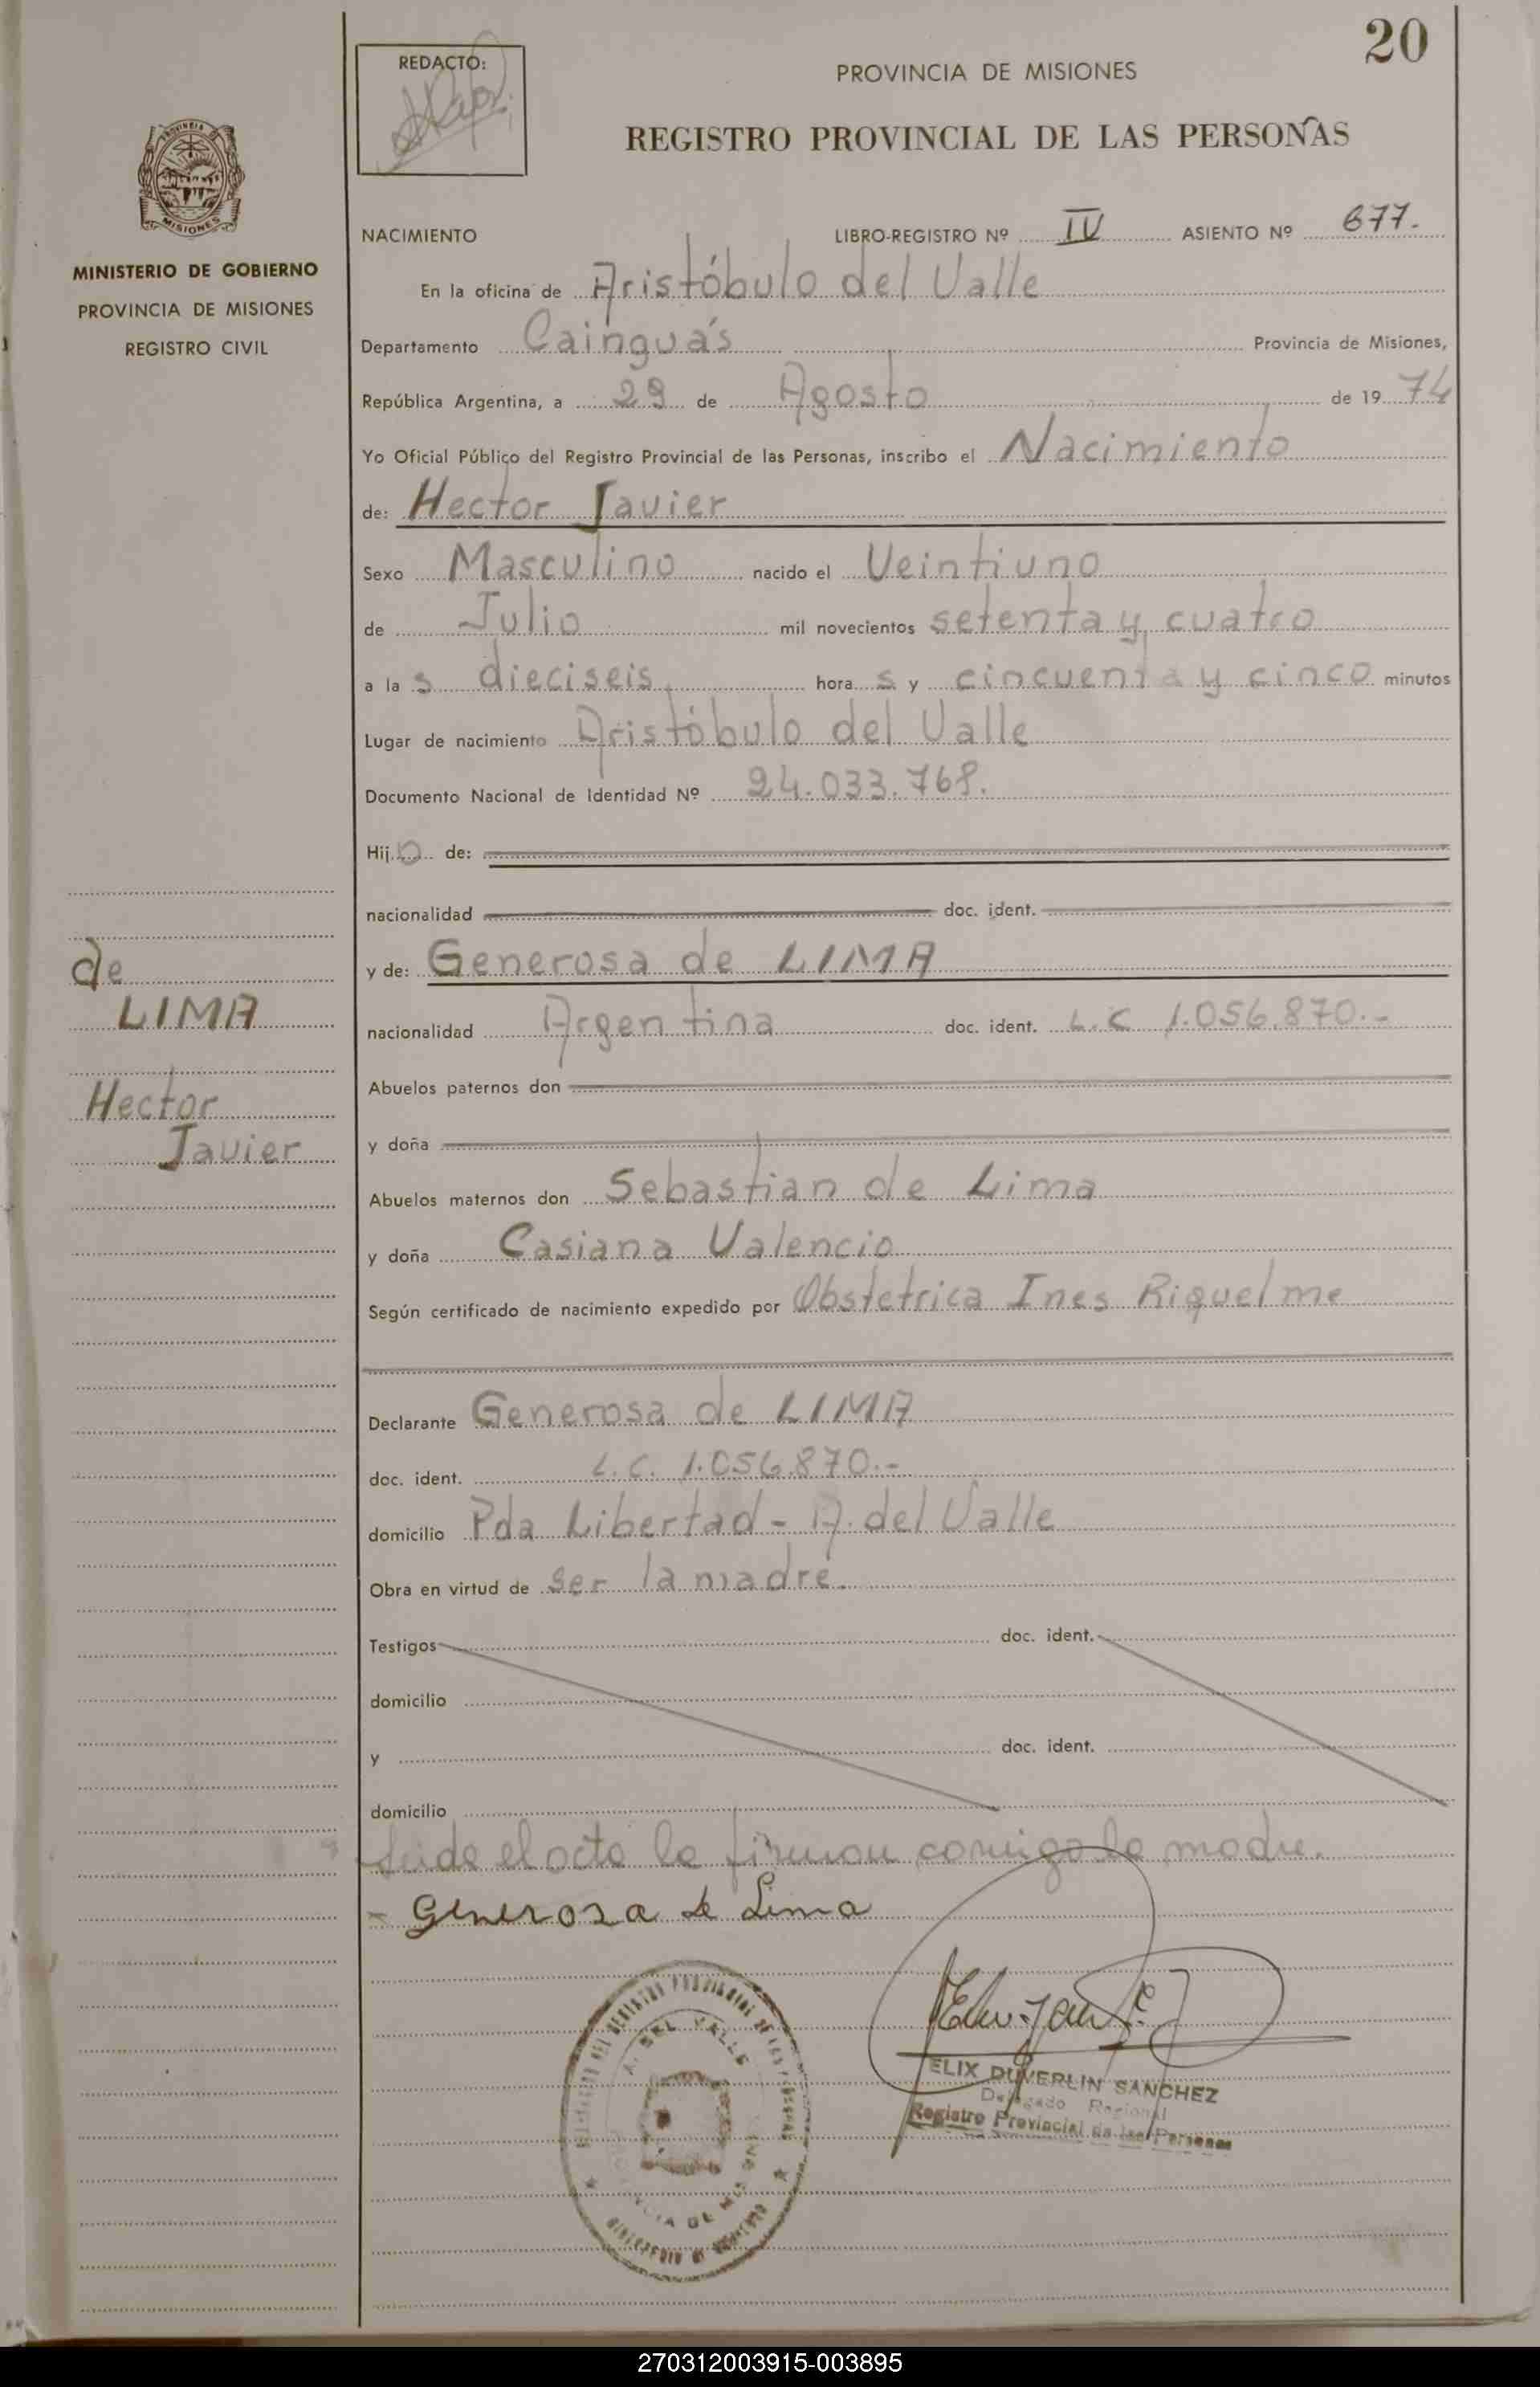 20
REDACTO:
PROVINCIA DE MISIONES
REGISTRO PROVINCIAL DE LAS PERSONAS
MISIONES
MINISTERIO DE GOBIERNO
PROVINCIA DE MISIONES
REGISTRO CIVIL
NACIMIENTO LIBRO-REGISTRO Nº IV ASIENTO Nº 677.
En la oficina de Aristóbulo del Valle
Departamento Cainguás Provincia de Misiones,
República Argentina, a 29 de Agosto de 1974
Yo Oficial Público del Registro Provincial de las Personas, inscribo el Nacimiento
de: Hector Javier
Sexo Masculino nacido el Veintiuno
de Julio mil novecientos setenta y cuatro
a la s dieciseis hora s y cincuenta y cinco minutos
Lugar de nacimiento Aristóbulo del Valle
Documento Nacional de Identidad Nº 24.033.768.
Hij o de:
nacionalidad doc. ident.
y de: Generosa de LIMA
nacionalidad Argentina doc. ident. L.C 1.056.870.-
Abuelos paternos don
y doña
Abuelos maternos don Sebastian de Lima
y doña Casiana Valencio
Según certificado de nacimiento expedido por Obstetrica Ines Riquelme
Declarante Generosa de LIMA
doc. ident. L.C. 1.056.870.-
domicilio Pda Libertad - A. del Valle
Obra en virtud de ser la madre.
Testigos doc. ident.
domicilio
y doc. ident.
domicilio
Leida el acta la firman conmigo la madre.
- Generosa de Lima
de
LIMA
Hector
Javier
A. DEL VALLE
ELIX DUVERLIN SANCHEZ
Delegado Regional
Registro Provincial de las Personas
270312003915-003895